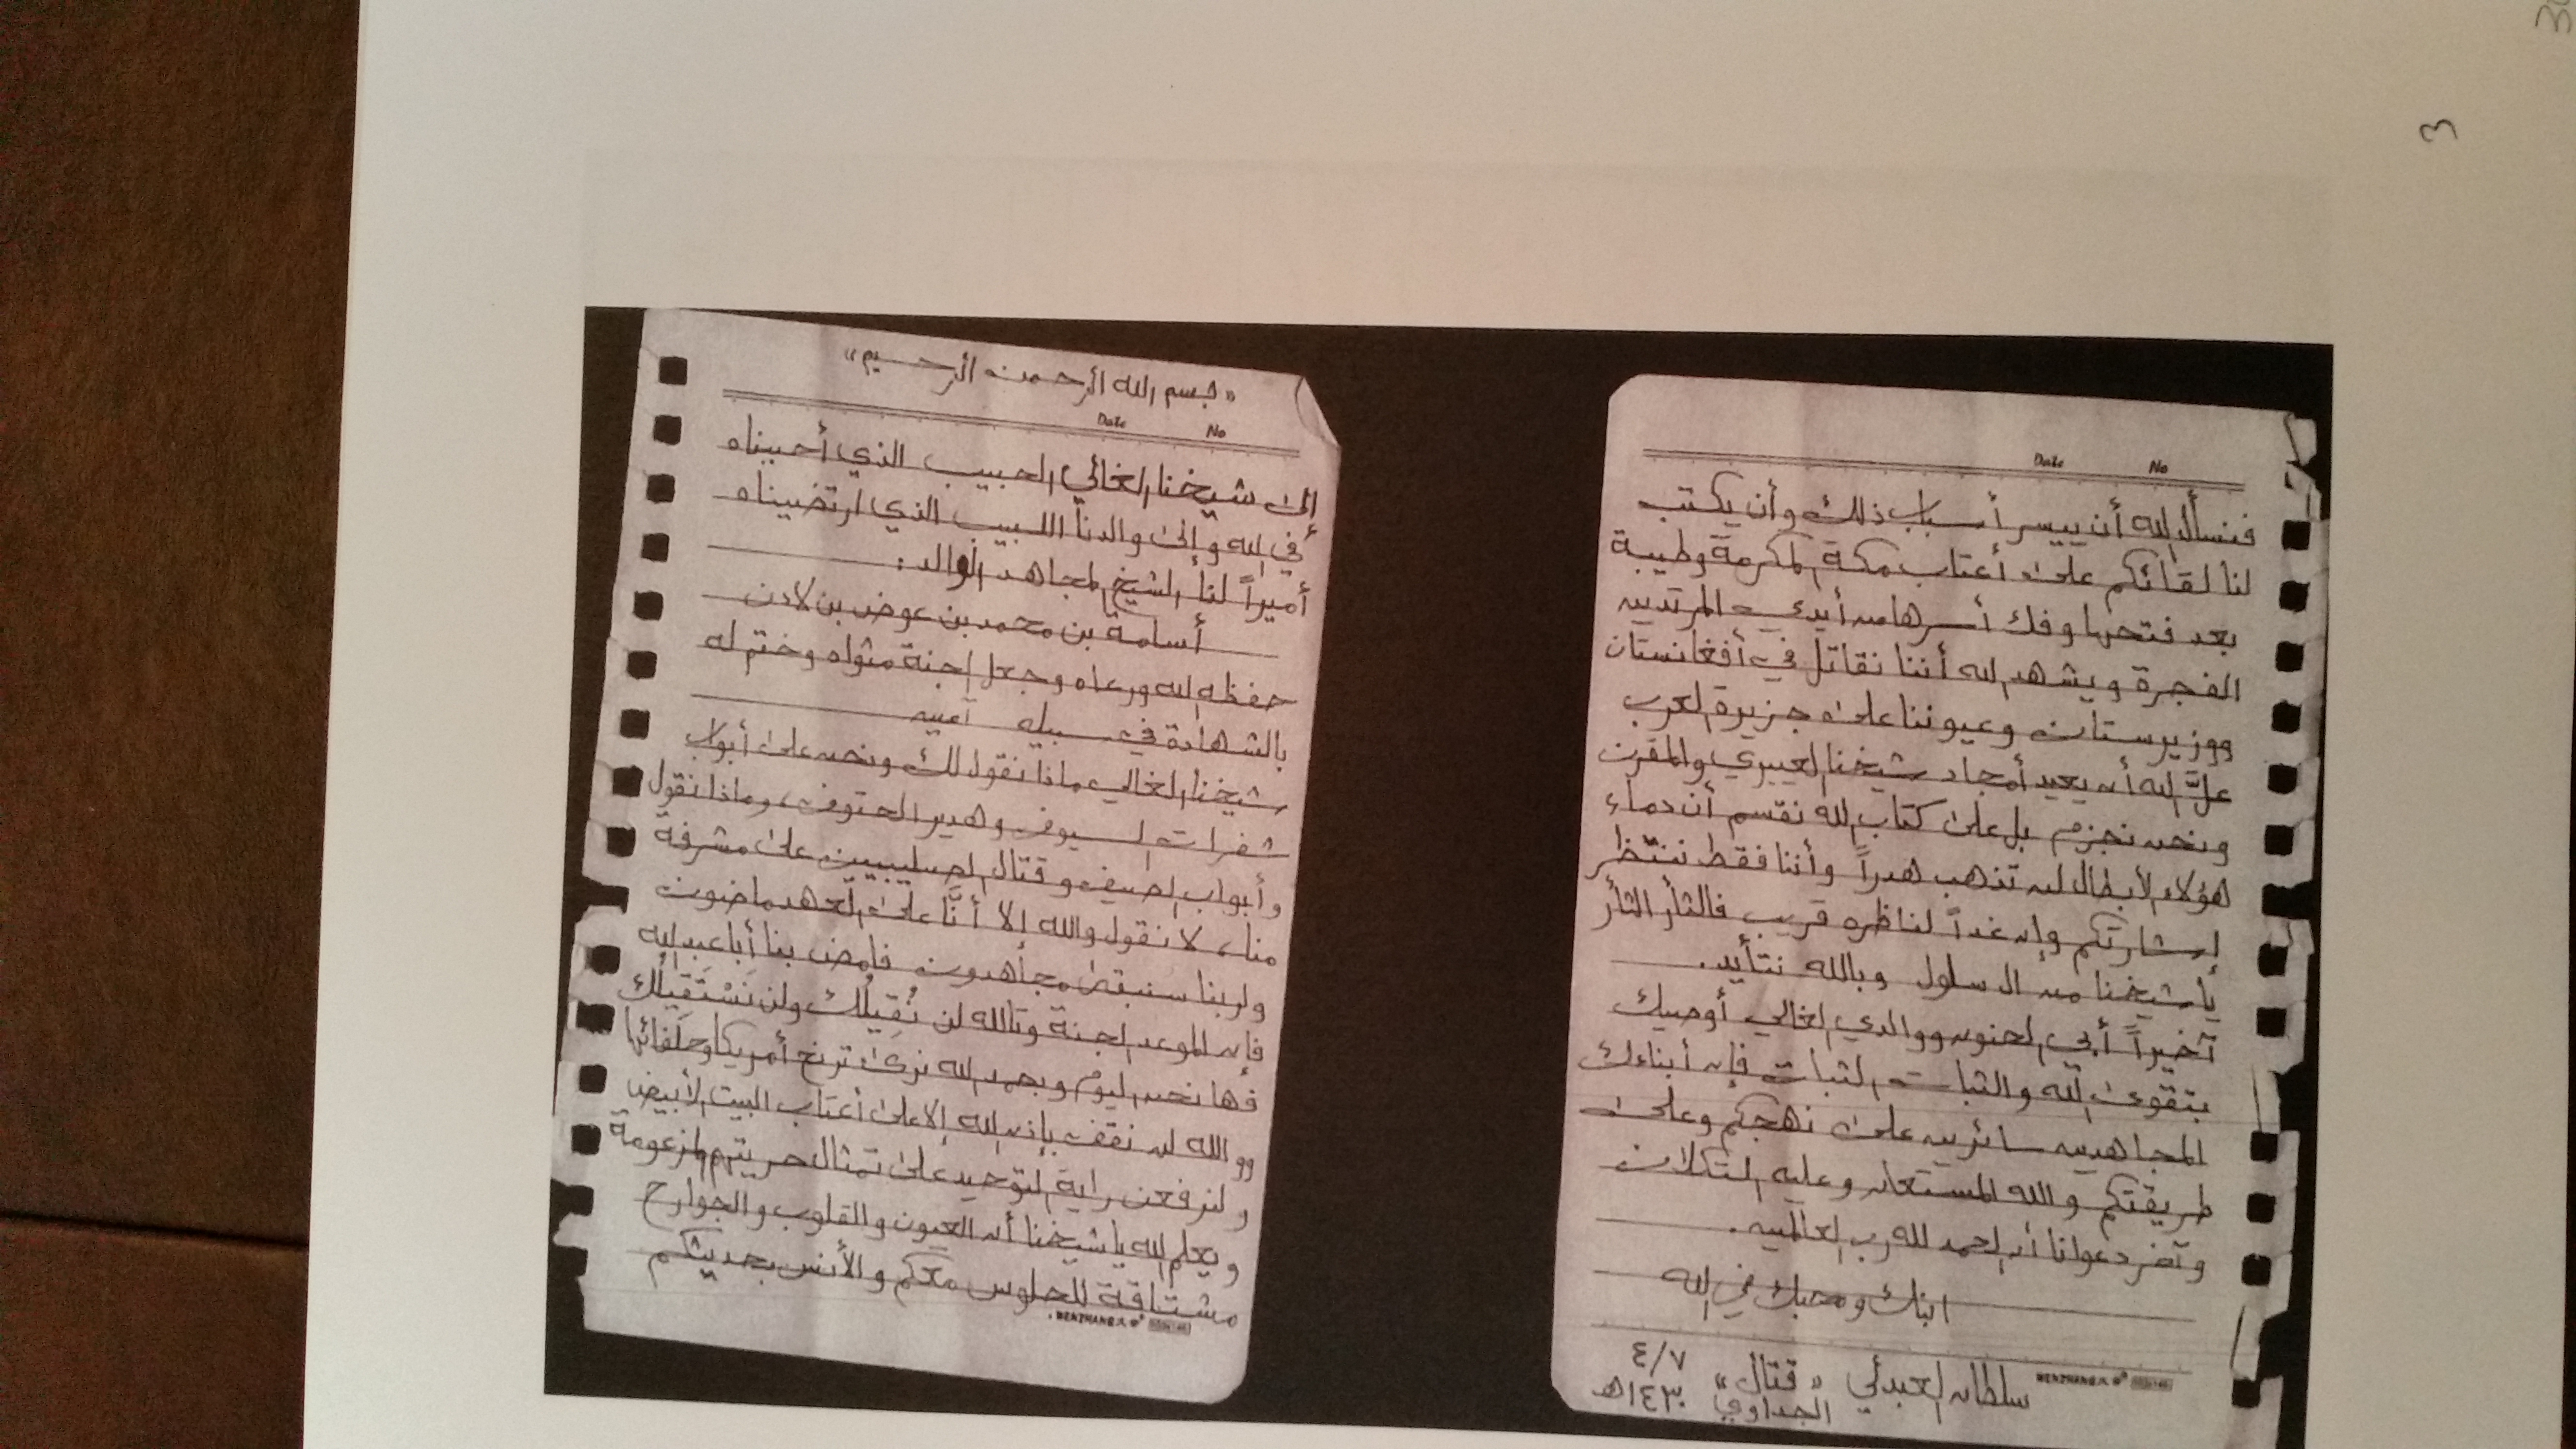 3
«بسم الله الرحمن الرحيم»
Date No
إلى شيخنا الغالي الحبيب الذي أحببناه
في الله وإلى والدنا اللبيب الذي ارتضيناه
أميراً لنا الشيخ المجاهد الوالد:
أسامة بن محمد بن عوض بن لادن
حفظه الله ورعاه وجعل الجنة مثواه وختم له
بالشهادة في سبيله آمين
شيخنا الغالي ماذا نقول لك ونحن على أبواب
شفرات السيوف وهدير الحتوف، وماذا نقول
وأبواب الصيف وقتال الصليبيين على مشرفة
منا، لا نقول والله إلا أنَّا على العهد ماضون
ولربنا سنبقى مجاهدون فامض بنا أبا عبد الله
فإن الموعد الجنة وتالله لن نُقِيلك ولن نَسْتَقِيلك
فها نحن اليوم وبحمد الله نرى ترنح أمريكا وحلفائها
ووالله لن نقف بإذن الله إلا على أعتاب البيت الأبيض
ولنرفعن راية التوحيد على تمثال حريتهم المزعومة
ويعلم الله يا شيخنا أن العيون والقلوب والجوارح
مشتاقة للجلوس معكم والأنس بحديثكم
WENZHANG
Date No
فنسأل الله أن ييسر أسباب ذلك وأن يكتب
لنا لقائكم على أعتاب مكة المكرمة وطيبة
بعد فتحها وفك أسرها من أيدي المرتدين
الفجرة ويشهد الله أننا نقاتل في أفغانستان
ووزيرستان وعيوننا على جزيرة العرب
علَّ الله أن يعيد أمجاد شيخنا العييري والمقرن
ونحن نجزم بل على كتاب الله نقسم أن دماء
هؤلاء الأبطال لن تذهب هدراً وأننا فقط ننتظر
إشارتكم وإن غداً لناظره قريب فالثأر الثأر
يا شيخنا من آل سلول وبالله نتأيد.
آخيراً أبي الحنون ووالدي الغالي أوصيك
بتقوى الله والثبات الثبات فإن أبناءك
المجاهدين سائرين على نهجكم وعلى
طريقتكم والله المستعان وعليه التكلان
وآخر دعوانا أن الحمد لله رب العالمين.
ابنك ومحبك في الله
WENZHANG
سلطان العبدلي «قتال» ٤/٧
الجداوي ١٤٣٠هـ